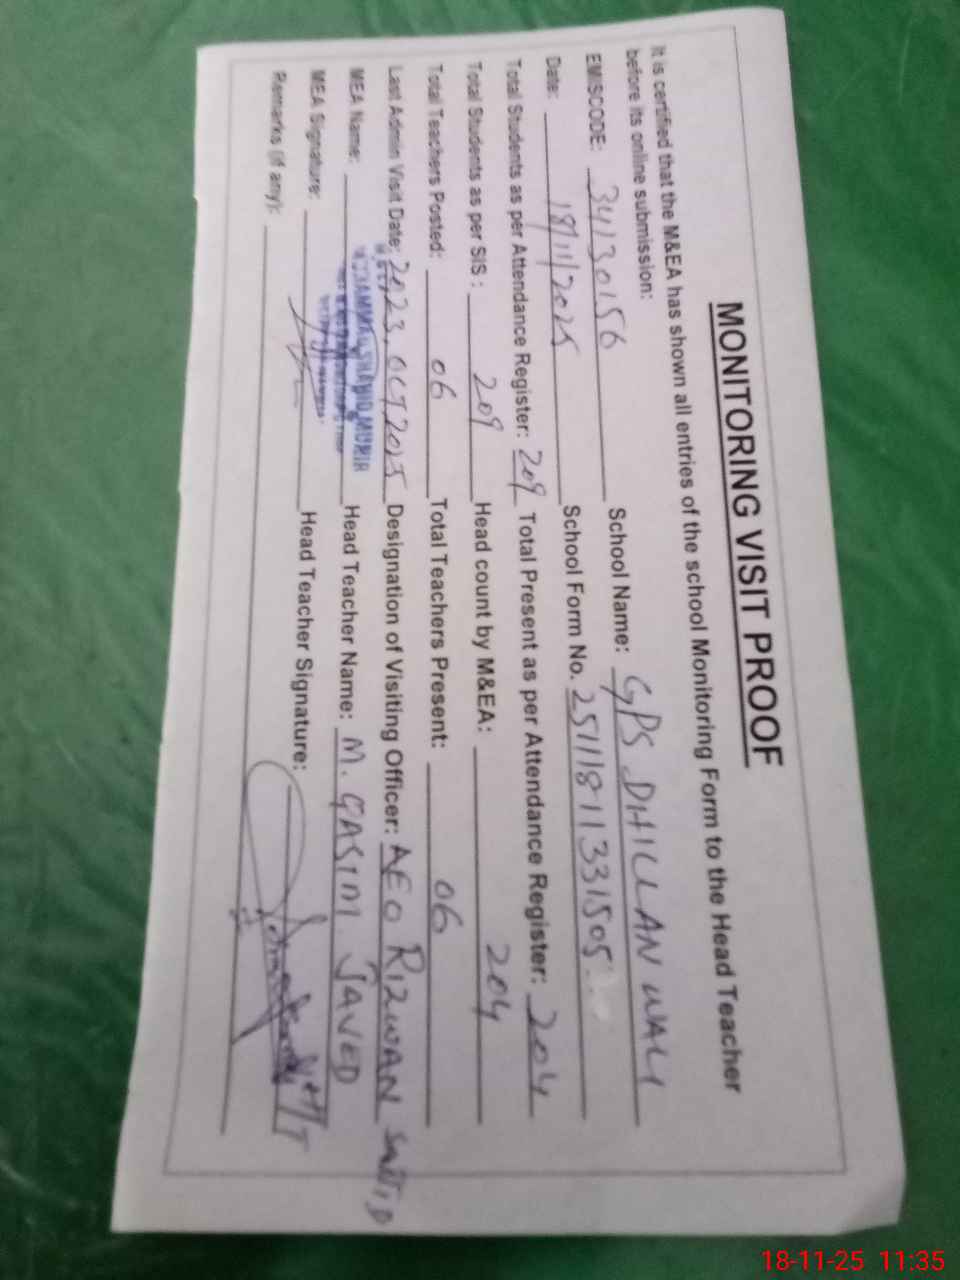 MONITORING VISIT PROOF
It is certified that the M&EA has shown all entries of the school Monitoring Form to the Head Teacher
before its online submission:
EMISCODE: 34130156 School Name: GPS DHILLAN WALI
Date: 18/11/2025 School Form No. 25111811331505
Total Students as per Attendance Register: 209 Total Present as per Attendance Register: 204
Total Students as per SIS: 209 Head count by M&EA: 204
Total Teachers Posted: 06 Total Teachers Present: 06
Last Admin Visit Date: 2023, OCT 2025 Designation of Visiting Officer: AEO RIZWAN SAJID
MEA Name: MUHAMMAD SHAHID MUNIR Head Teacher Name: M. QASIM JAVED
MEA Signature: Head Teacher Signature:
Remarks (if any):
18-11-25 11:35